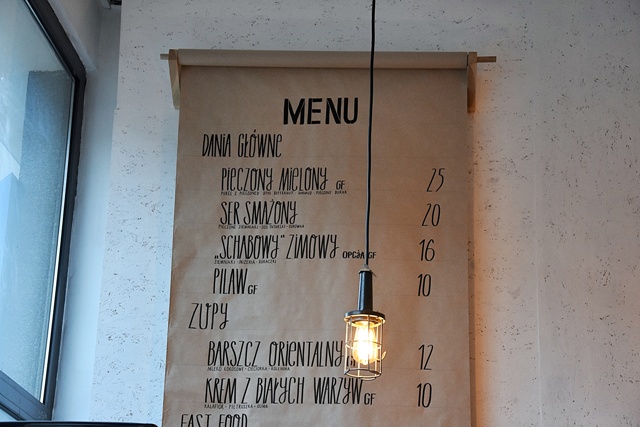 MENU
DANIA GŁÓWNE
PIECZONY MIELONY GF 25
SER SMAŻONY 20
„SCHABOWY" ZIMOWY OPCJA GF 16
PILAW GF 10
ZUPY
BARSZCZ ORIENTALNY 12
KREM Z BIAŁYCH WARZYW GF 10
KALAFIOR - PIETRUSZKA -
FAST FOOD